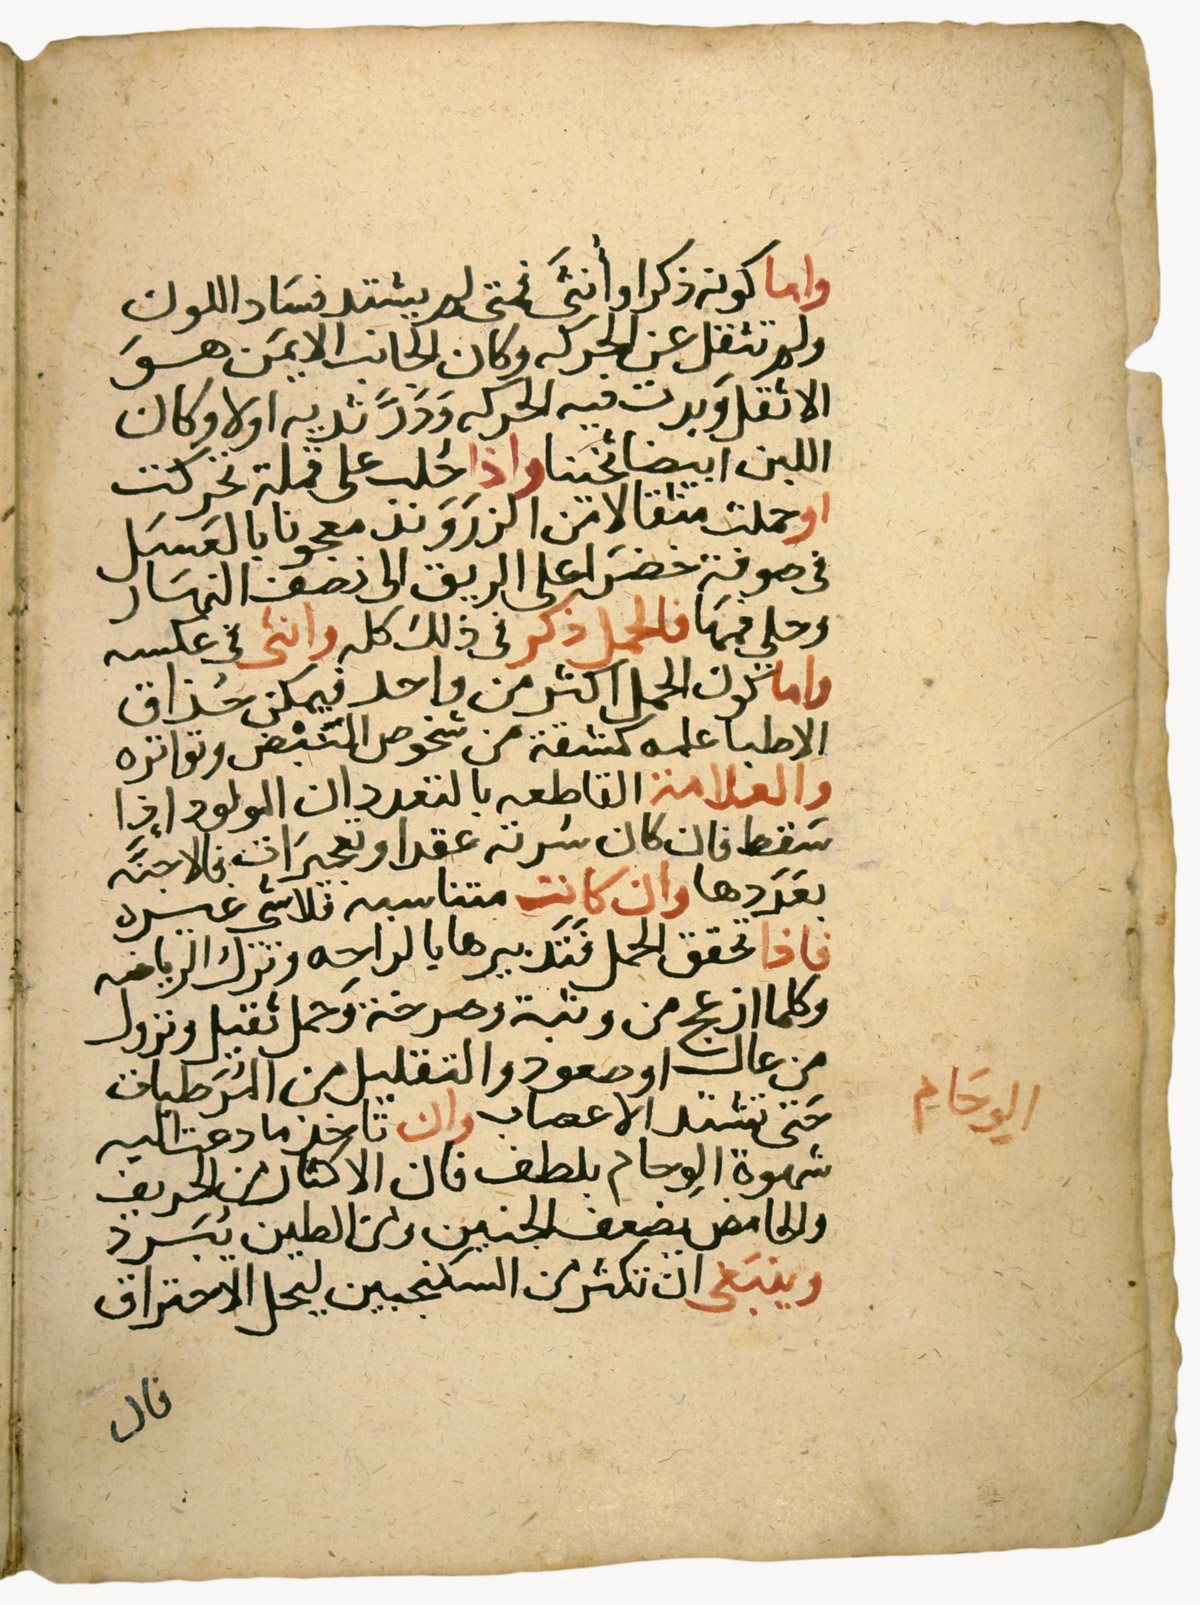 واما كونه ذكرا او أنثى فمتى لم يشتد فساد اللون
ولم تثقل عن الحركه وكان الجانب الايمن هو
الاثقل وبدت فيه الحركه ودَرَّ ثديه اولا وكان
اللبن ابيضا ثخينا واذا حُلب على قملة تحركت
او حملت مثقالا من الزرَوَند معجونا بالعَسَل
في صوفة خضرا على الريق الى نصف النهار
وحلي فمها فالحمل ذكر في ذلك كله وانثى في عكسه
واما كون الحمل اكثر من واحد فيمكن حُذاق
الاطبا علمه كشفة من شخوص النبض وتواتره
والعلامة القاطعه بالتعدد ان المولود اذا
سَقط فان كان سُرته عقدا وتعجيرات فالاجنّه
بعَدَدها وان كانت متناسبه فلا شي غيره
فاذا تحقق الحمل فتَدبيرها بالراحه وترك الرياضه
وكلما ازعج من وثبة وصرخة وَحمل ثقيل ونزول
من عال او صعود والتقليل من المُرَطبات
حَتى تشتد الاعصاب وان تاخذ ما دعت اليه
شهوة الوِحام بلطف فان الاكثار من الحريف
والحامض يضعف الجنين ومن الطين يُبَرد
وينبَغي ان تكثر من السكنجبين ليحل الاحتراق
الوِحَام
قال